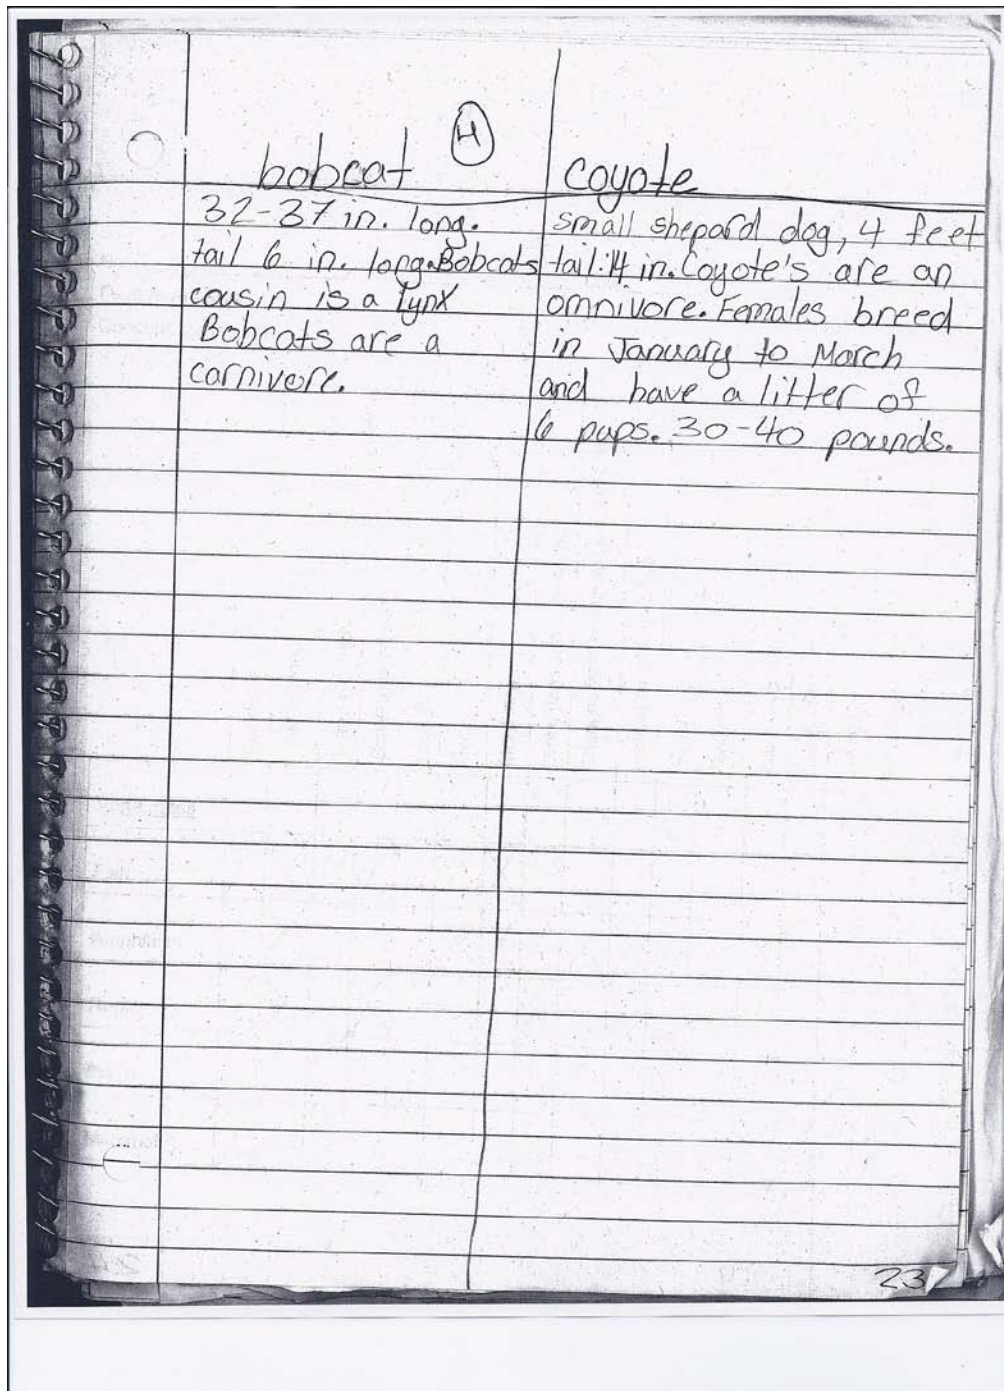 4
bobcat
32-37 in. long.
tail 6 in. long.Bobcats
cousin is a Lynx
Bobcats are a
carnivore.
coyote
small shepard dog, 4 feet
tail:14 in. Coyote's are an
omnivore. Females breed
in January to March
and have a litter of
6 pups. 30-40 pounds.
23